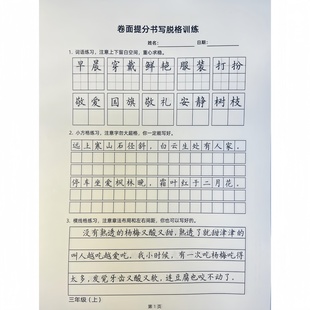 卷面提分书写脱格训练
姓名: 日期:
1. 词语练习，注意上下留白空间，重心求稳。
早晨 穿戴 鲜艳 服装 打扮
敬爱 国旗 敬礼 安静 树枝
2. 小方格练习，注意字勿大超格，你一定能写好。
远上寒山石径斜，白云生处有人家。
停车坐爱枫林晚，霜叶红于二月花。
3. 横线格练习，注意章法布局和左右间距，你也可以写好的。
没有熟透的杨梅又酸又甜，熟透了就甜津津的
叫人越吃越爱吃。我小时候，有一次吃杨梅吃得
太多，发觉牙齿又酸又软，连豆腐也咬不动了.
三年级（上）
第 1 页